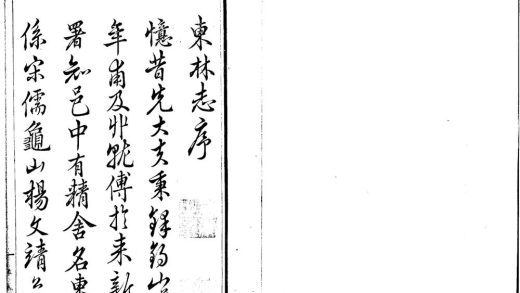 東林志序
憶昔先大夫秉鐸錫山
年甫及丱就傅於來新
署知邑中有精舍名東
係宋儒龜山楊文靖公